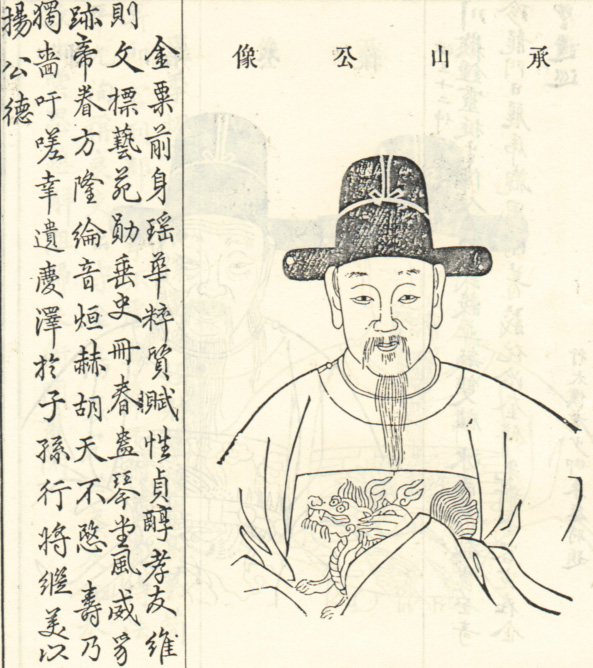 承山公像
金粟前身瑤華粹質賦性貞醇孝友維
則文標藝苑勛垂史冊春盎琴堂風威豸
跡帝眷方隆綸音烜赫胡天不憖 壽乃
獨嗇吁嗟幸遺慶澤於子孫行將繼美以
揚 公德